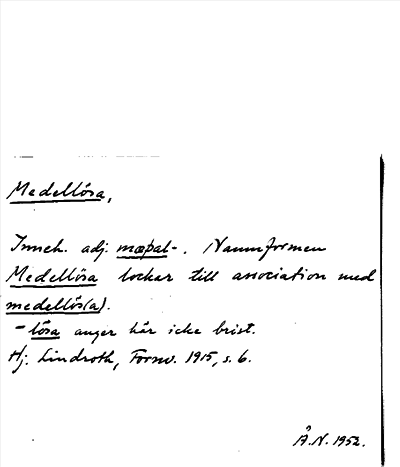 Medellösa,
Inneh. adj. mæþal-. Namnformen
Medellösa lockar till association med
medellös(a).
-lösa anger här icke brist.
Hj. Lindroth, Fornv. 1915, s. 6.
Å.N. 1952.